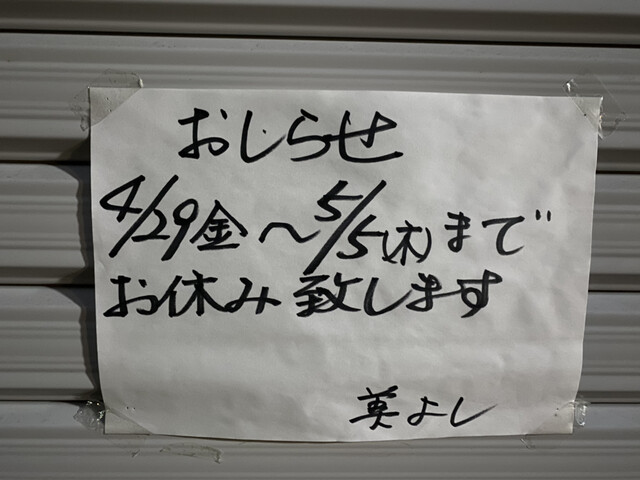 おしらせ
4/29金～5/5(木)まで
お休み致します
英よし